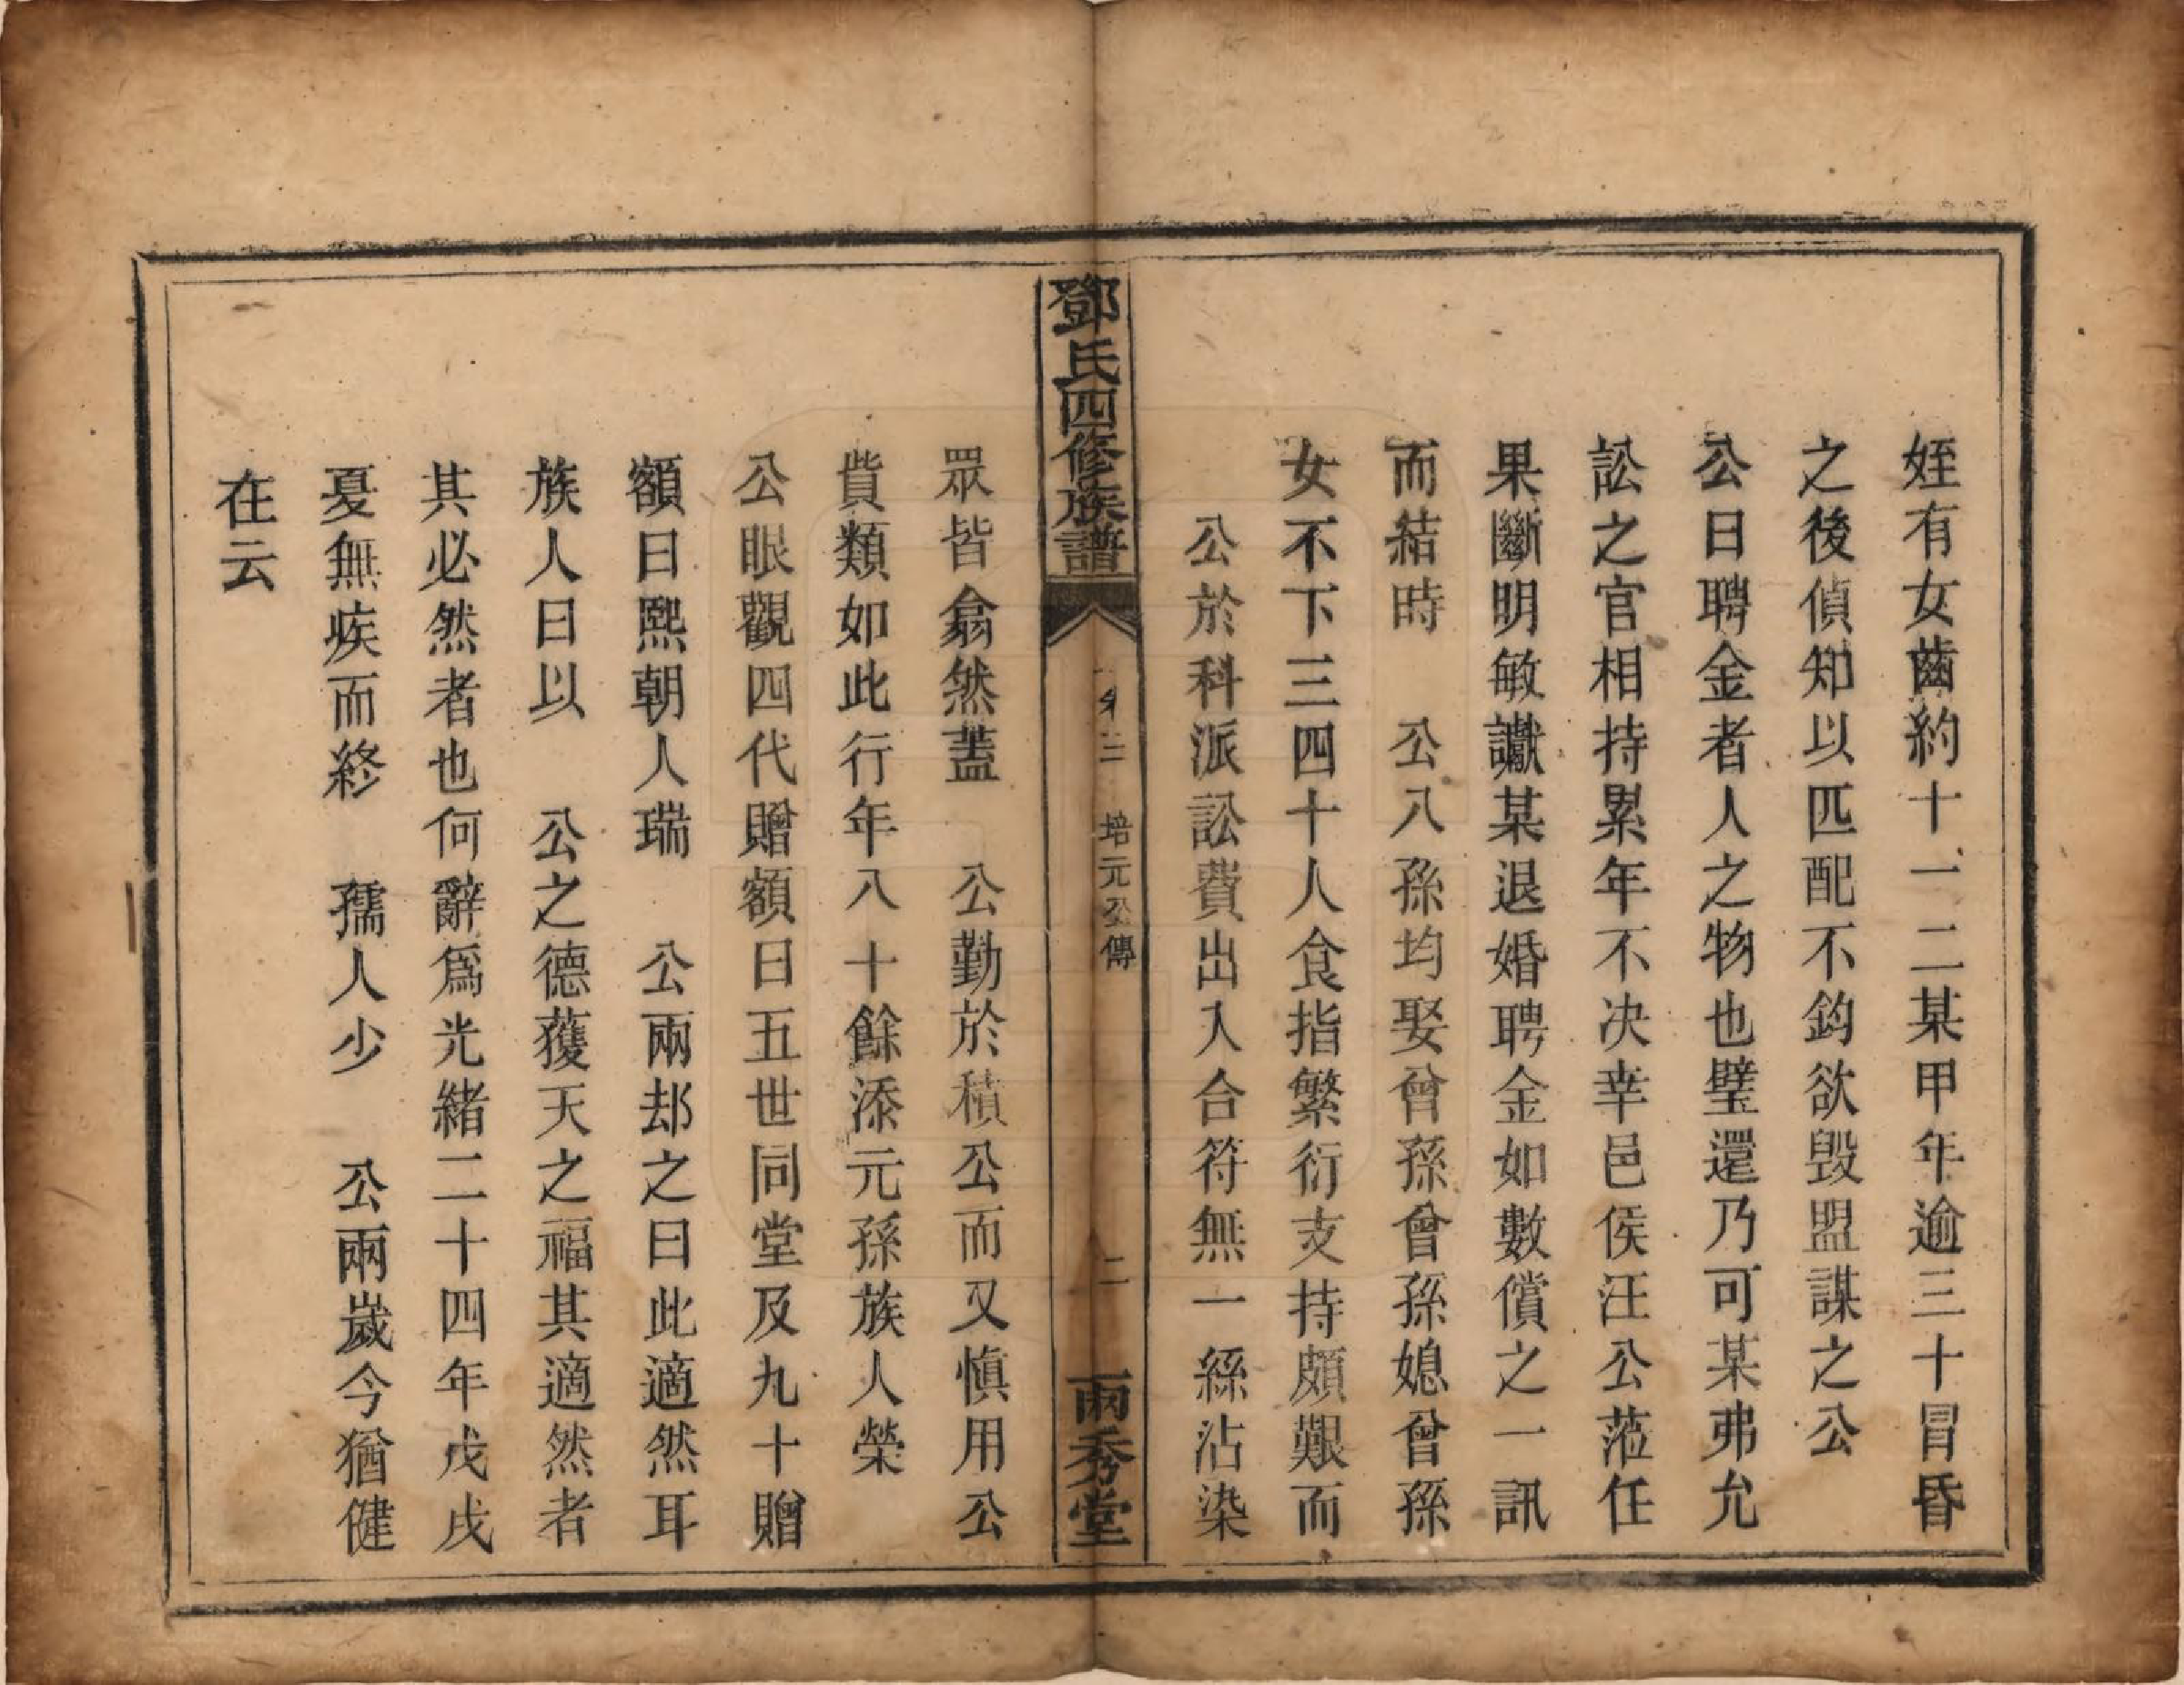 姪有女齒約十一二某甲年逾三十冒昏
之後偵知以匹配不鈞欲毀盟謀之公
公曰聘金者人之物也璧還乃可某弗允
訟之官相持累年不决幸邑侯汪公蒞任
果斷明敏讞某退婚聘金如數償之一訊
而結時　公八孫均娶曾孫曾孫媳曾孫
女不下三四十人食指繁衍支持頗艱而
公於科派訟費出入合符無一絲沾染
鄧氏四修族譜　卷三　培元公傳　二　兩秀堂
眾皆翕然蓋　公勤於積公而又慎用公
貲類如此行年八十餘添元孫族人榮
公眼觀四代贈額曰五世同堂及九十贈
額曰熙朝人瑞　公兩却之曰此適然耳
族人曰以　公之德獲天之福其適然者
其必然者也何辭爲光緒二十四年戊戌
憂無疾而終　孺人少　公兩歲今猶健
在云